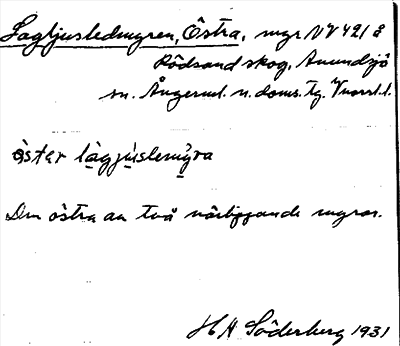 Lagljusledmyren, Östra, myr NV 421 å
Rödsand skog, Anundsjö
sn. Ångerml. n. doms. tg. Vnorrl. l.
öster lagjuslemýra
Den östra av två närliggande myror.
H A Söderberg 1931